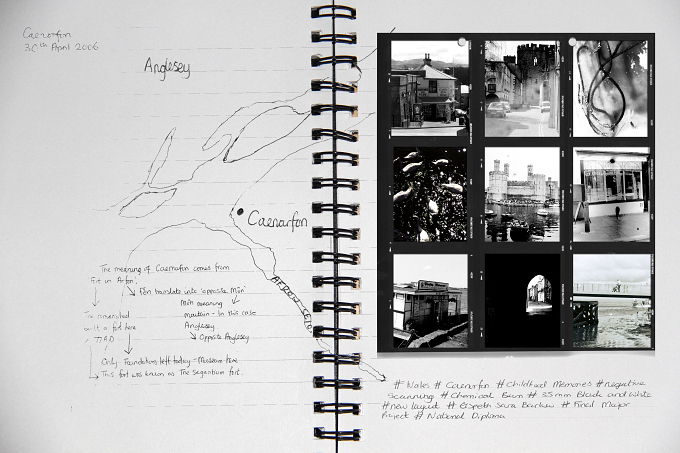 Caernarfon
30th April 2006
Anglesey
Caernarfon
AFRON SEIO
The meaning of Caernarfon comes from
Fort in Arfon.
Fôn translate into 'opposite Môn'
Môn meaning
- In this case
Anglesey
Opposite Anglesey
The
built a fort here
77AD
Only Foundations left today - Museum here
This fort was known as The Segontium fort.
# Wales # Caernarfon # Childhood Memories # negative
Scanning # Chemical Burn # 35mm Black and White
# new layout # Elspeth Sara # Final Major
Project # National Diploma